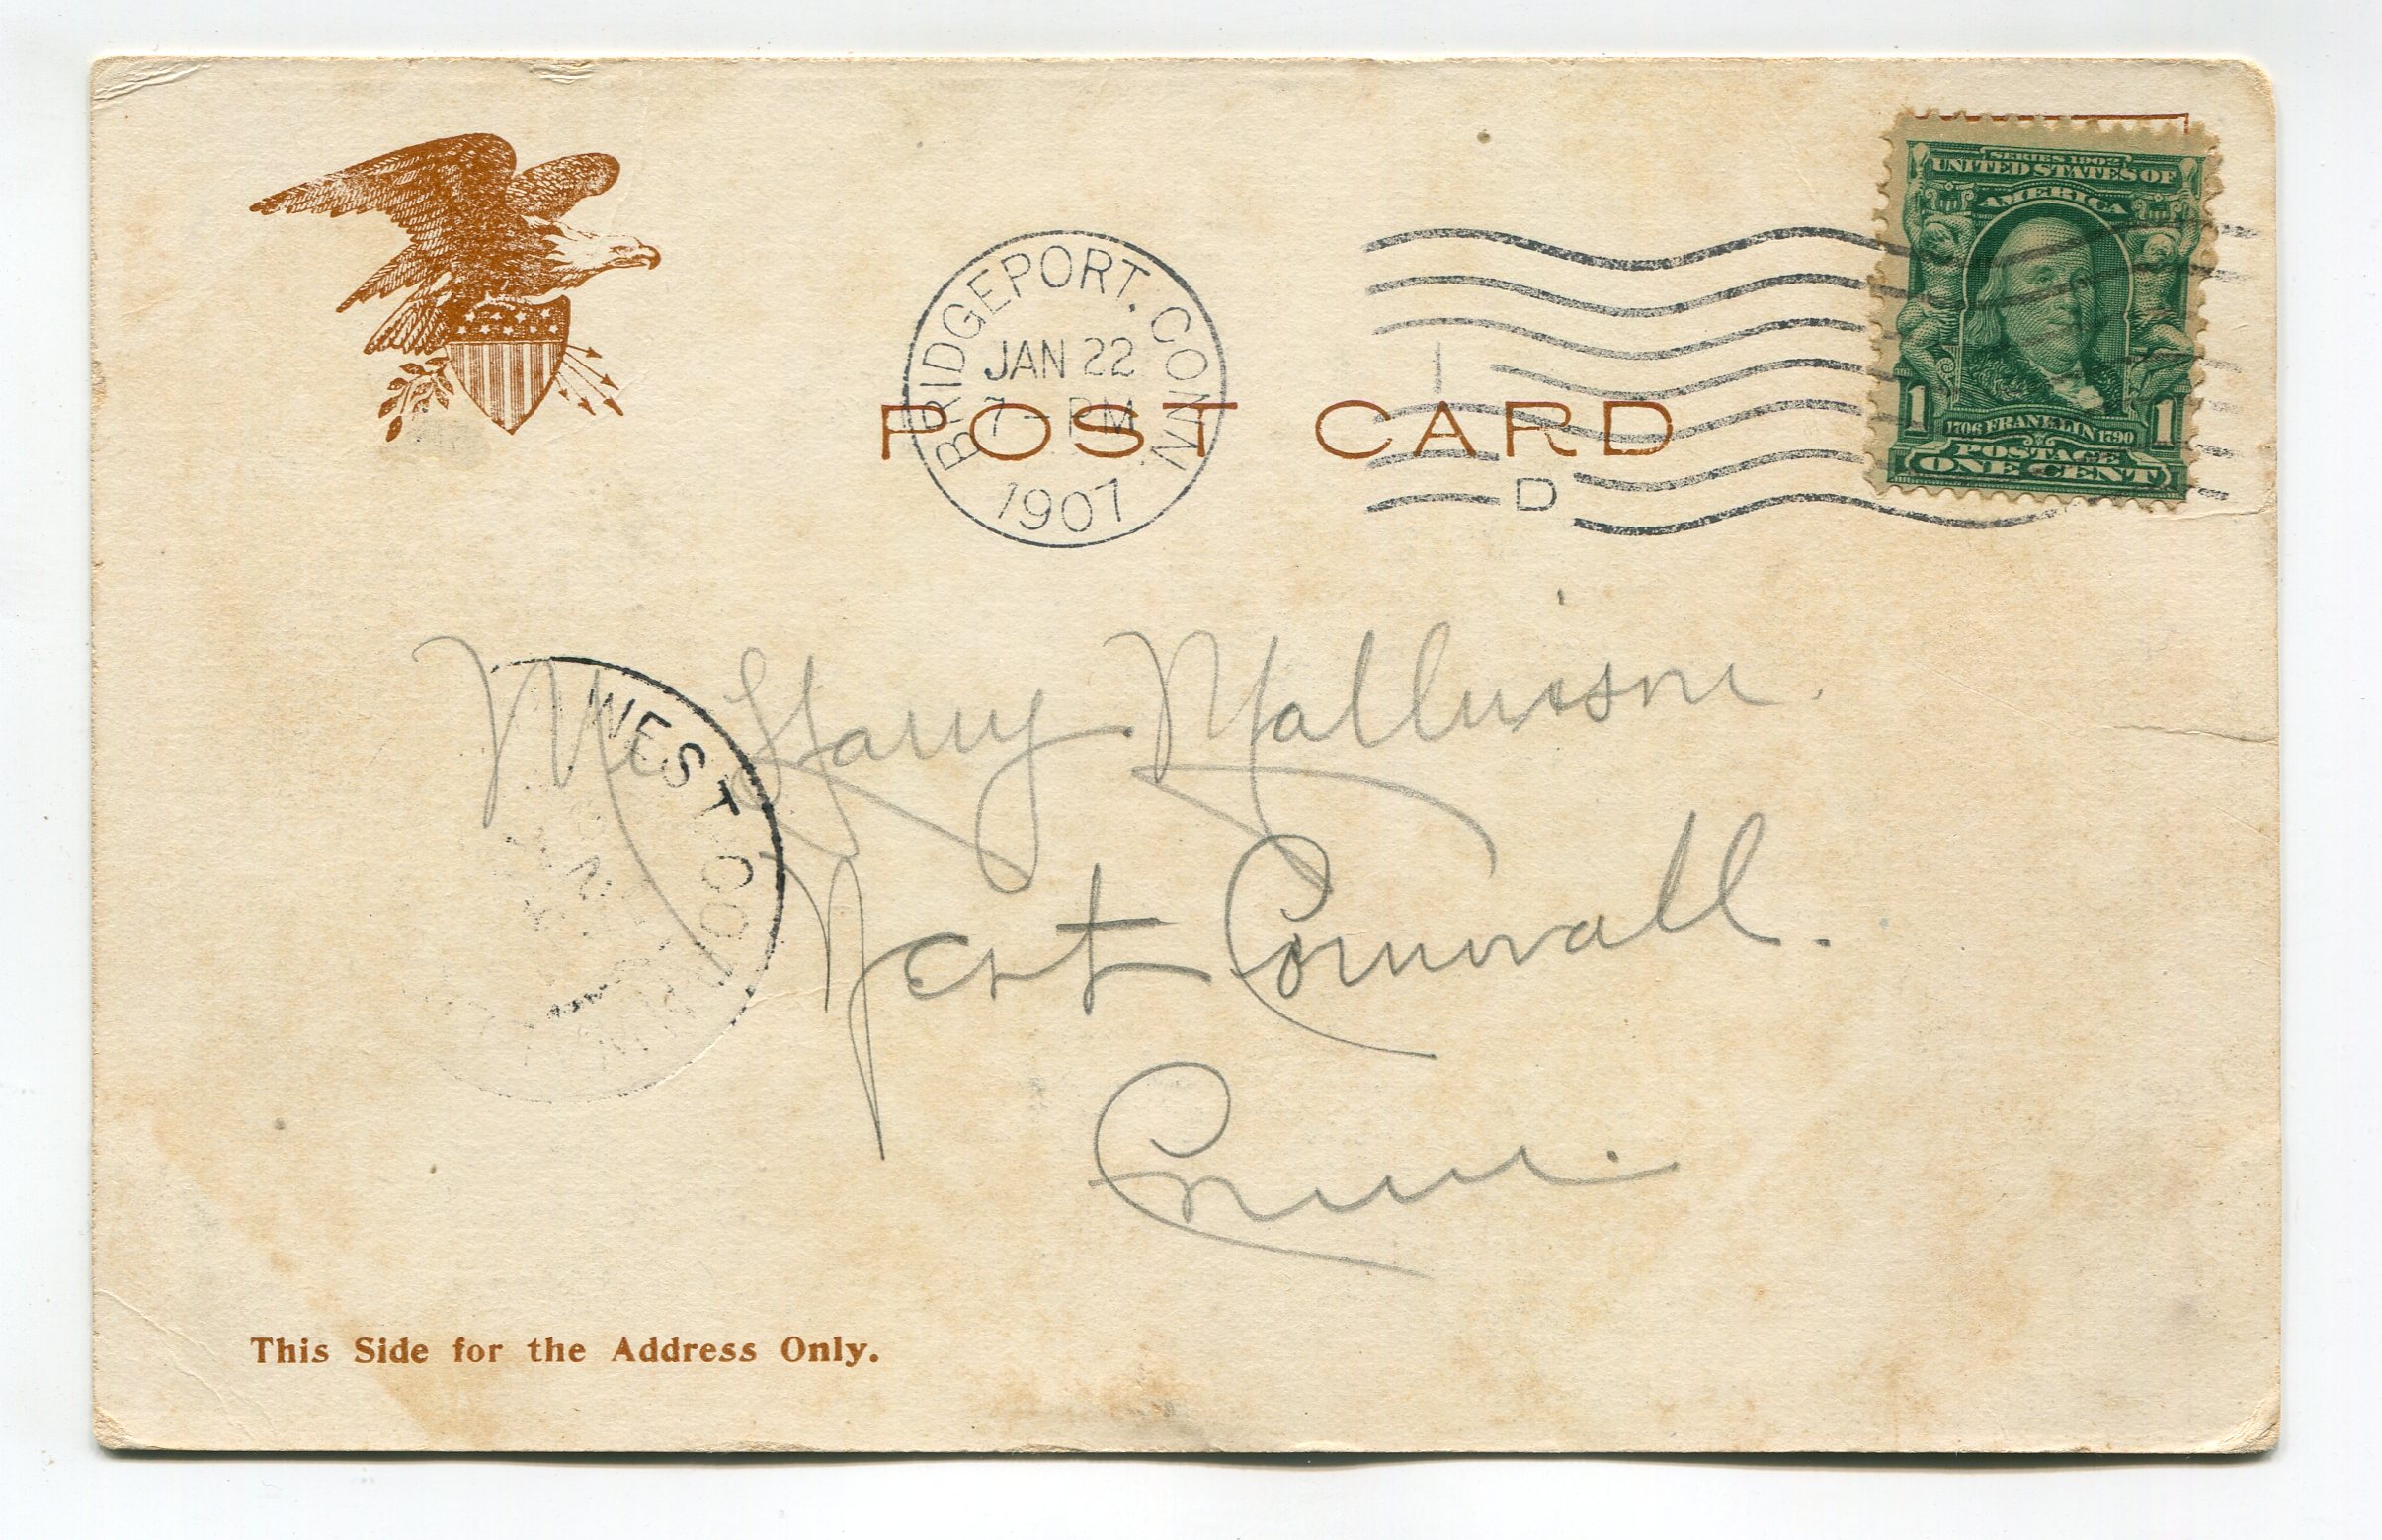 SERIES 1902
UNITED STATES OF
AMERICA
1 1706 FRANKLIN 1790 1
POSTAGE
ONE CENT
BRIDGEPORT. CONN
JAN 22
7 - PM
1907
D
POST CARD
Mr Harry Mallinson.
West Cornwall.
Conn.
WEST CORNW
This Side for the Address Only.